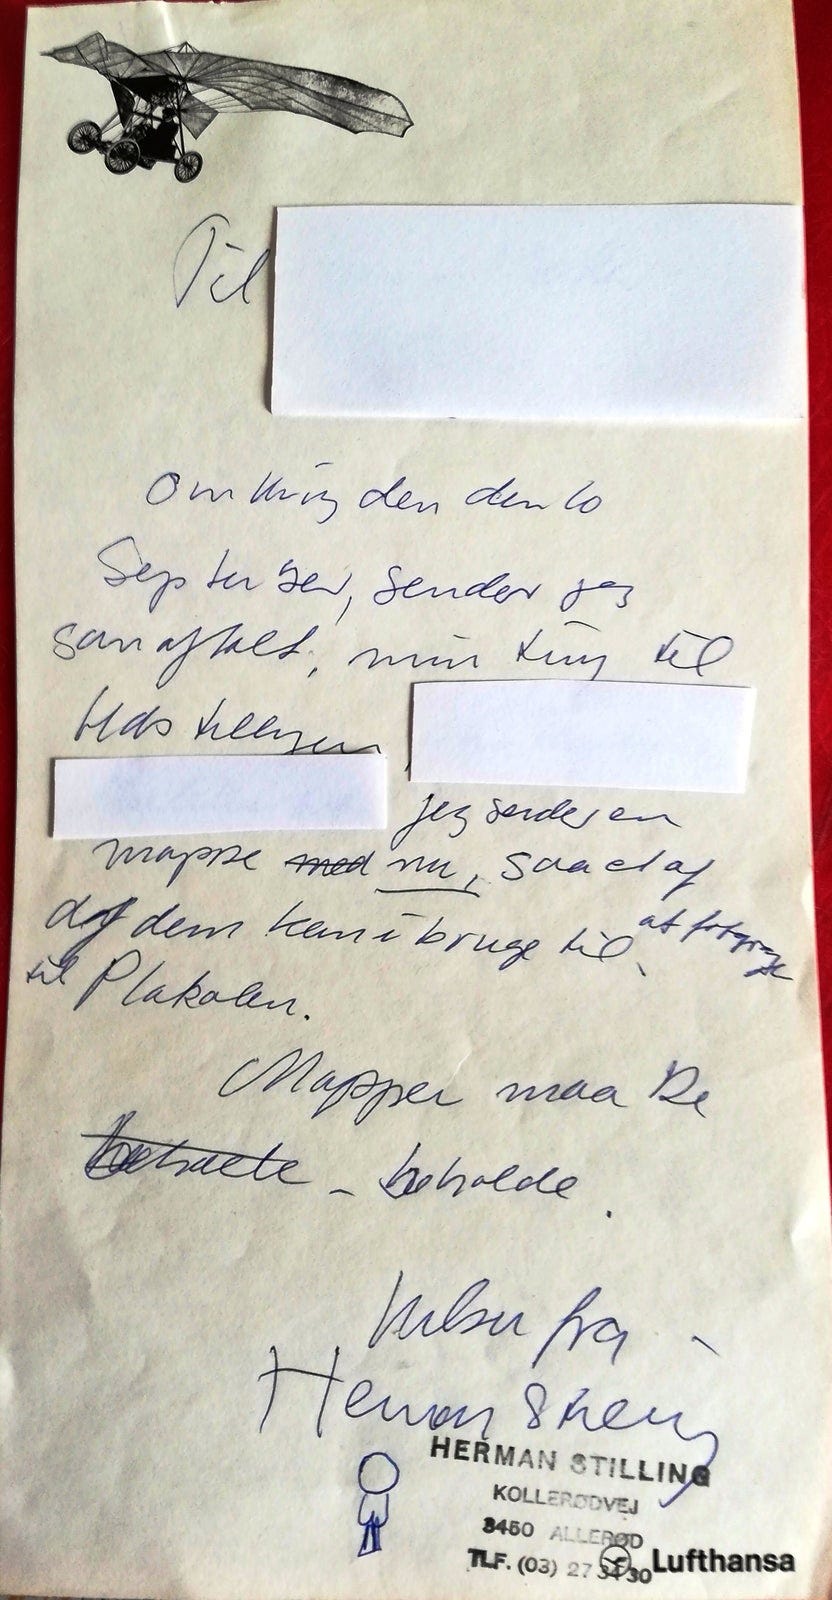 Til
Omkring den den 10
September, sender jeg
som aftalt, mine ting til
Udstillingen
jeg sender en
mappe med nu, saa
dem kan i bruge til at fotografere
til Plakaten.
Mappen maa De
beholde.
Hilsen fra
Herman Stilling
HERMAN STILLING
KOLLERØDVEJ
3450 ALLERØD
TLF. (03) 27 34 30
Lufthansa